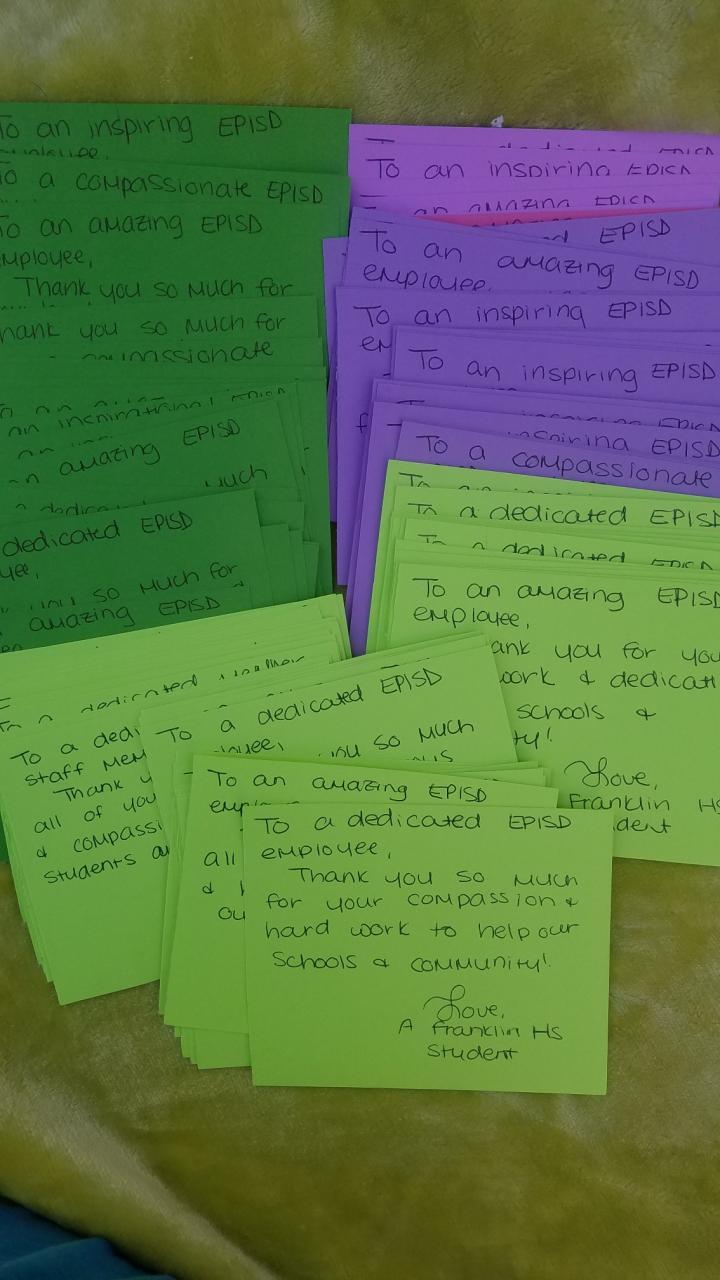 To an inspiring EPISD
To a compassionate EPISD
To an amazing EPISD
employee,
Thank you so much for
Thank you so much for
compassionate
an inspirational
an amazing EPISD
much
dedicated EPISD
so much for
amazing EPISD
To an inspiring EPISD
an amazing EPISD
EPISD
To an amazing EPISD
employee
To an inspiring EPISD
To an inspiring EPISD
inspiring EPISD
To a compassionate
To a dedicated EPISD
To a dedicated EPISD
To an amazing EPISD
employee,
Thank you for you
work & dedicati
schools &
ty!
Love,
Franklin HS
dent
To a dedicated
To a dedi
staff mem
Thank y
all of you
& compassi
students a
To a dedicated EPISD
you so much
To an amazing EPISD
all
&
ou
To a dedicated EPISD
employee,
Thank you so much
for your compassion &
hard work to help our
schools & community!
Love,
A Franklin HS
student